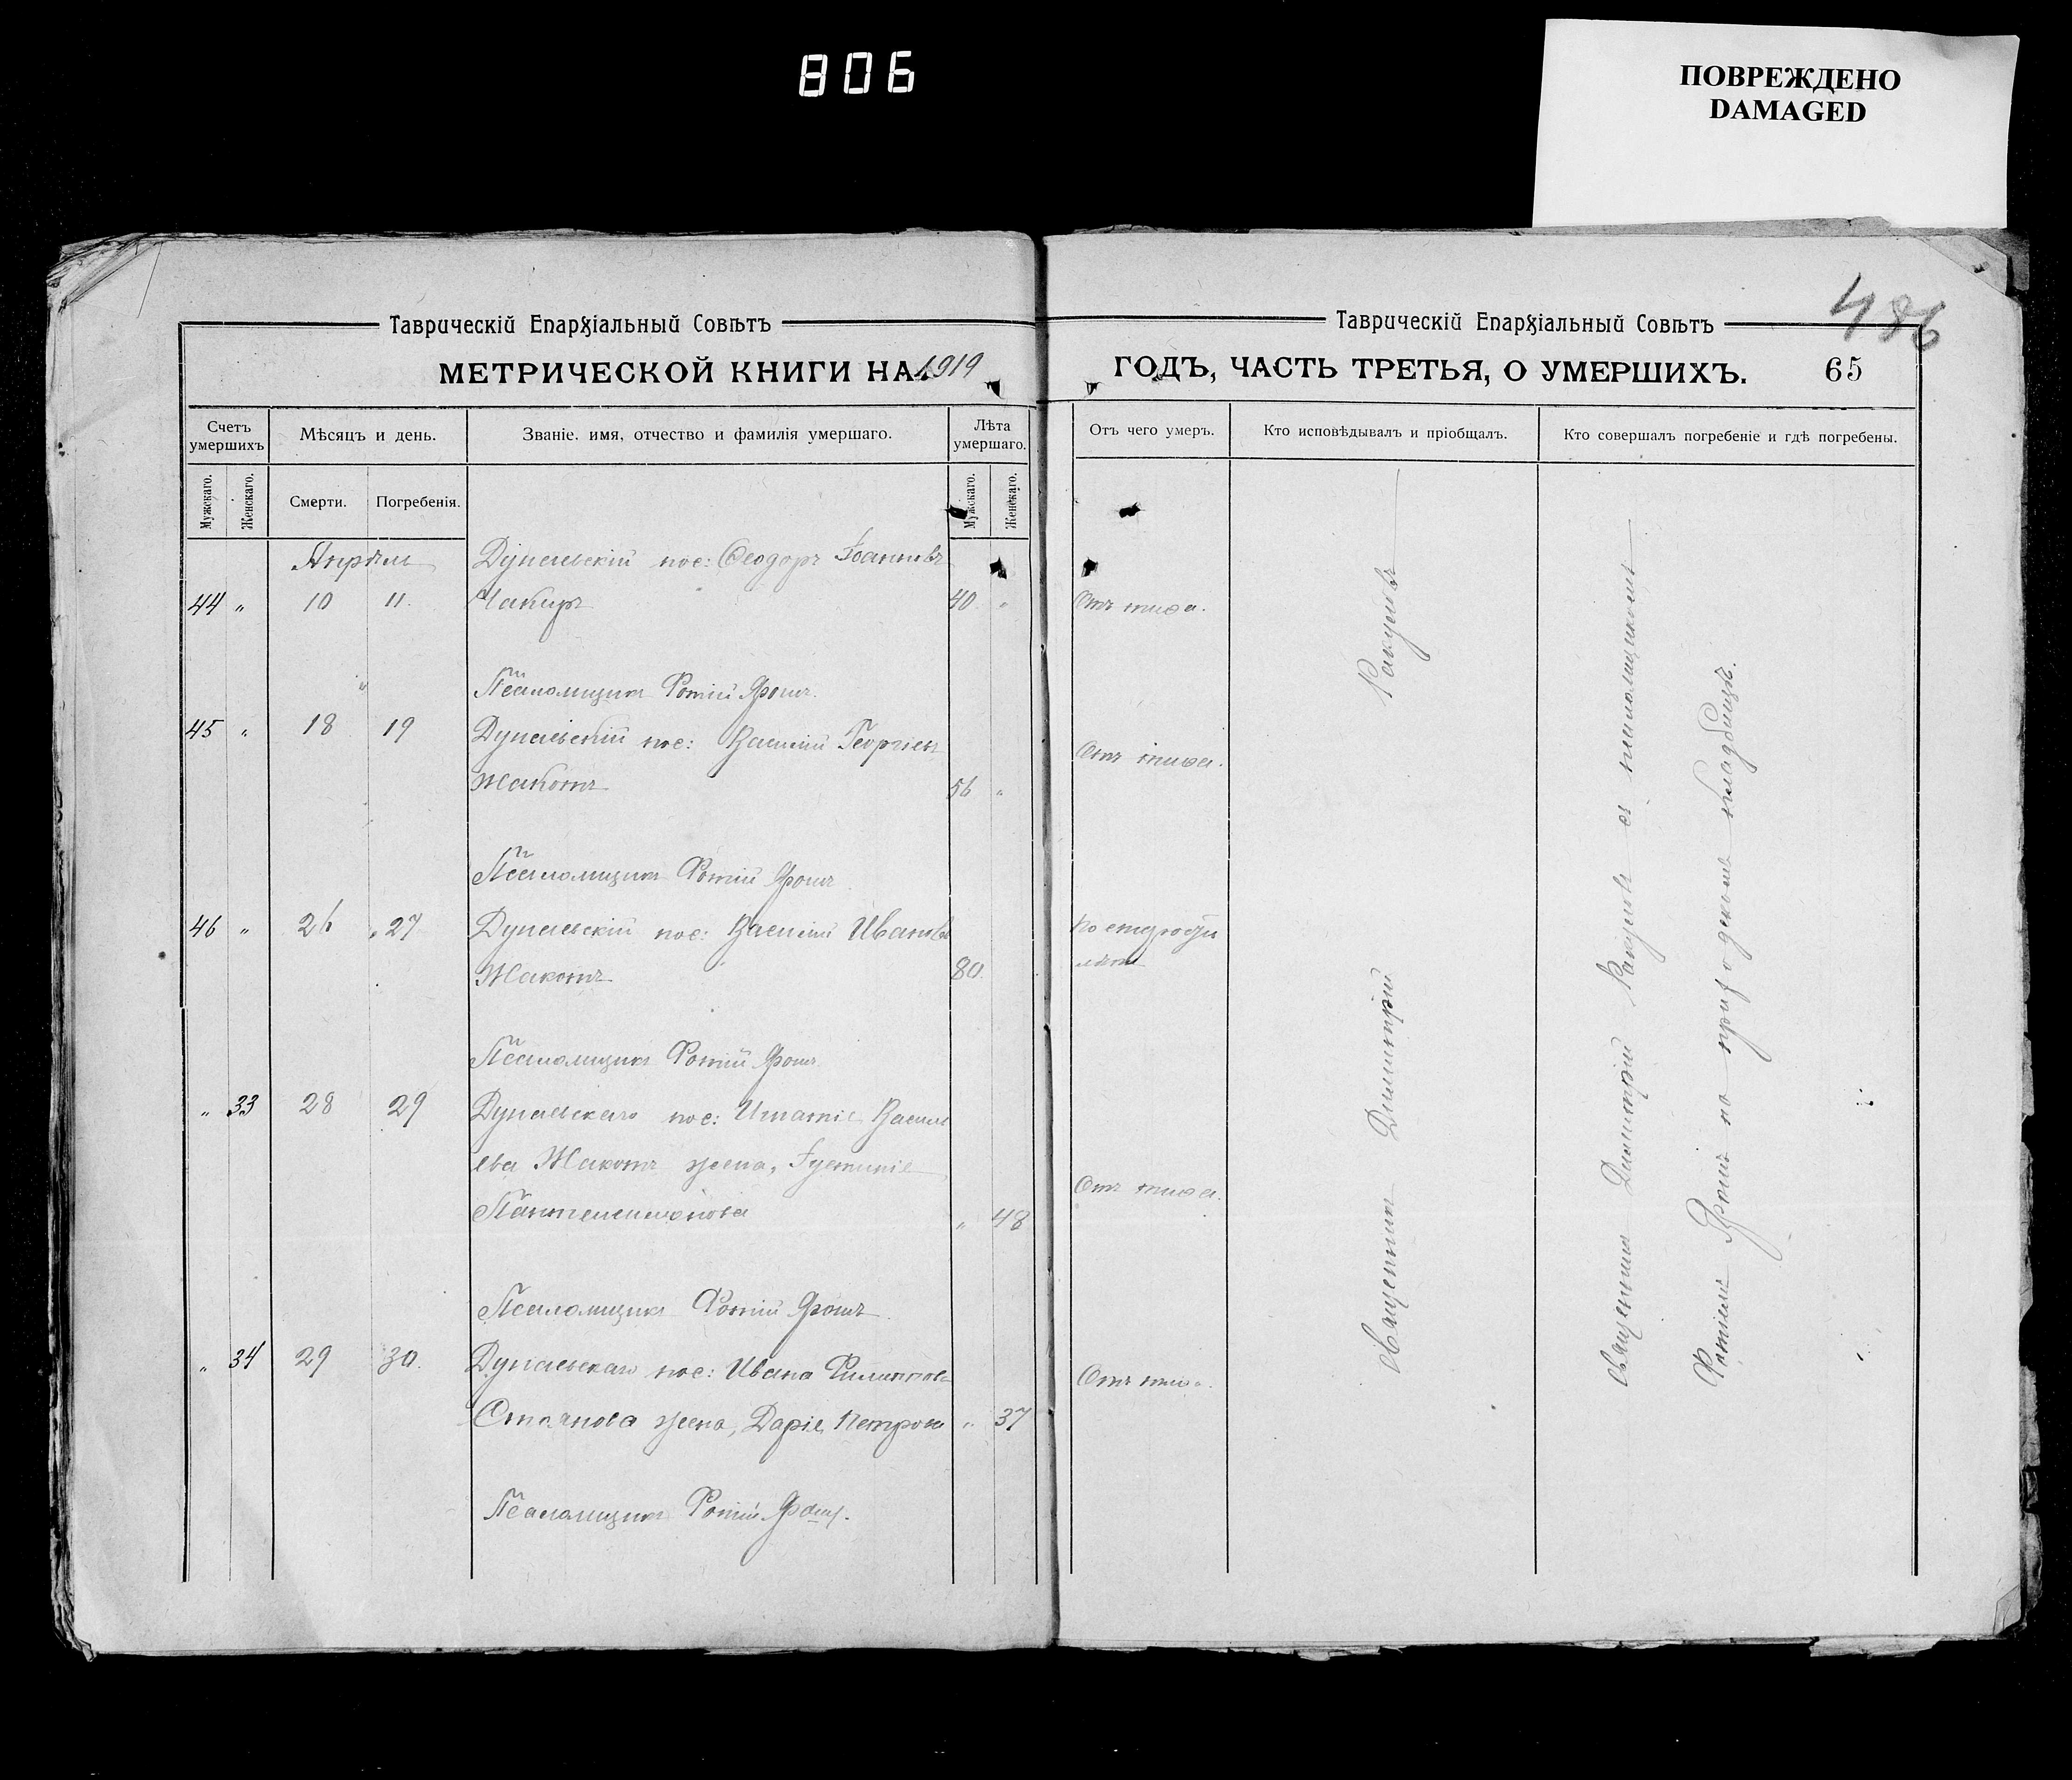 806
ПОВРЕЖДЕНО
DAMAGED
486
Таврическій Епархіальный Совѣтъ
МЕТРИЧЕСКОЙ КНИГИ НА 1919
Счетъ умершихъ
Мужскаго.
Женскаго.
Мѣсяцъ и день.
Смерти.
Погребенія.
Званіе, имя, отчество и фамилія умершаго.
Лѣта умершаго.
Мужскаго.
Женскаго.
Таврическій Епархіальный Совѣтъ
ГОДЪ, ЧАСТЬ ТРЕТЬЯ, О УМЕРШИХЪ. 65
Отъ чего умеръ.
Кто исповѣдывалъ и пріобщалъ.
Кто совершалъ погребеніе и гдѣ погребены.
Апрѣль Дунаевскій пос: Ѳеодоръ Іоанновъ
44 " 10 11. Чакиръ 40 " Отъ тифа.
Псаломщикъ Фотій
45 " 18 19 Дунаевскій пос: Василій Георгіевъ Отъ тифа.
Жакотъ 56 "
Псаломщикъ Фотій
46 " 26 27 Дунаевскій пос: Василій Ивановъ По старости
Жакотъ 80. лѣтъ
Псаломщикъ Фотій
" 33 28 29 Дунаевскаго пос: Игнатія Василь
ева Жакотъ жена, Іустинія Отъ тифа.
Пантелеимонова " 48
Псаломщикъ Фотій
" 34 29 30. Дунаевскаго пос: Ивана Филиппова Отъ тифа.
Стоянова жена, Дарія Петрова " 37
Псаломщикъ Фотій
Священникъ Димитрій
Священникъ Димитрій съ псаломщикомъ
Фотіемъ на приходскомъ кладбищѣ.